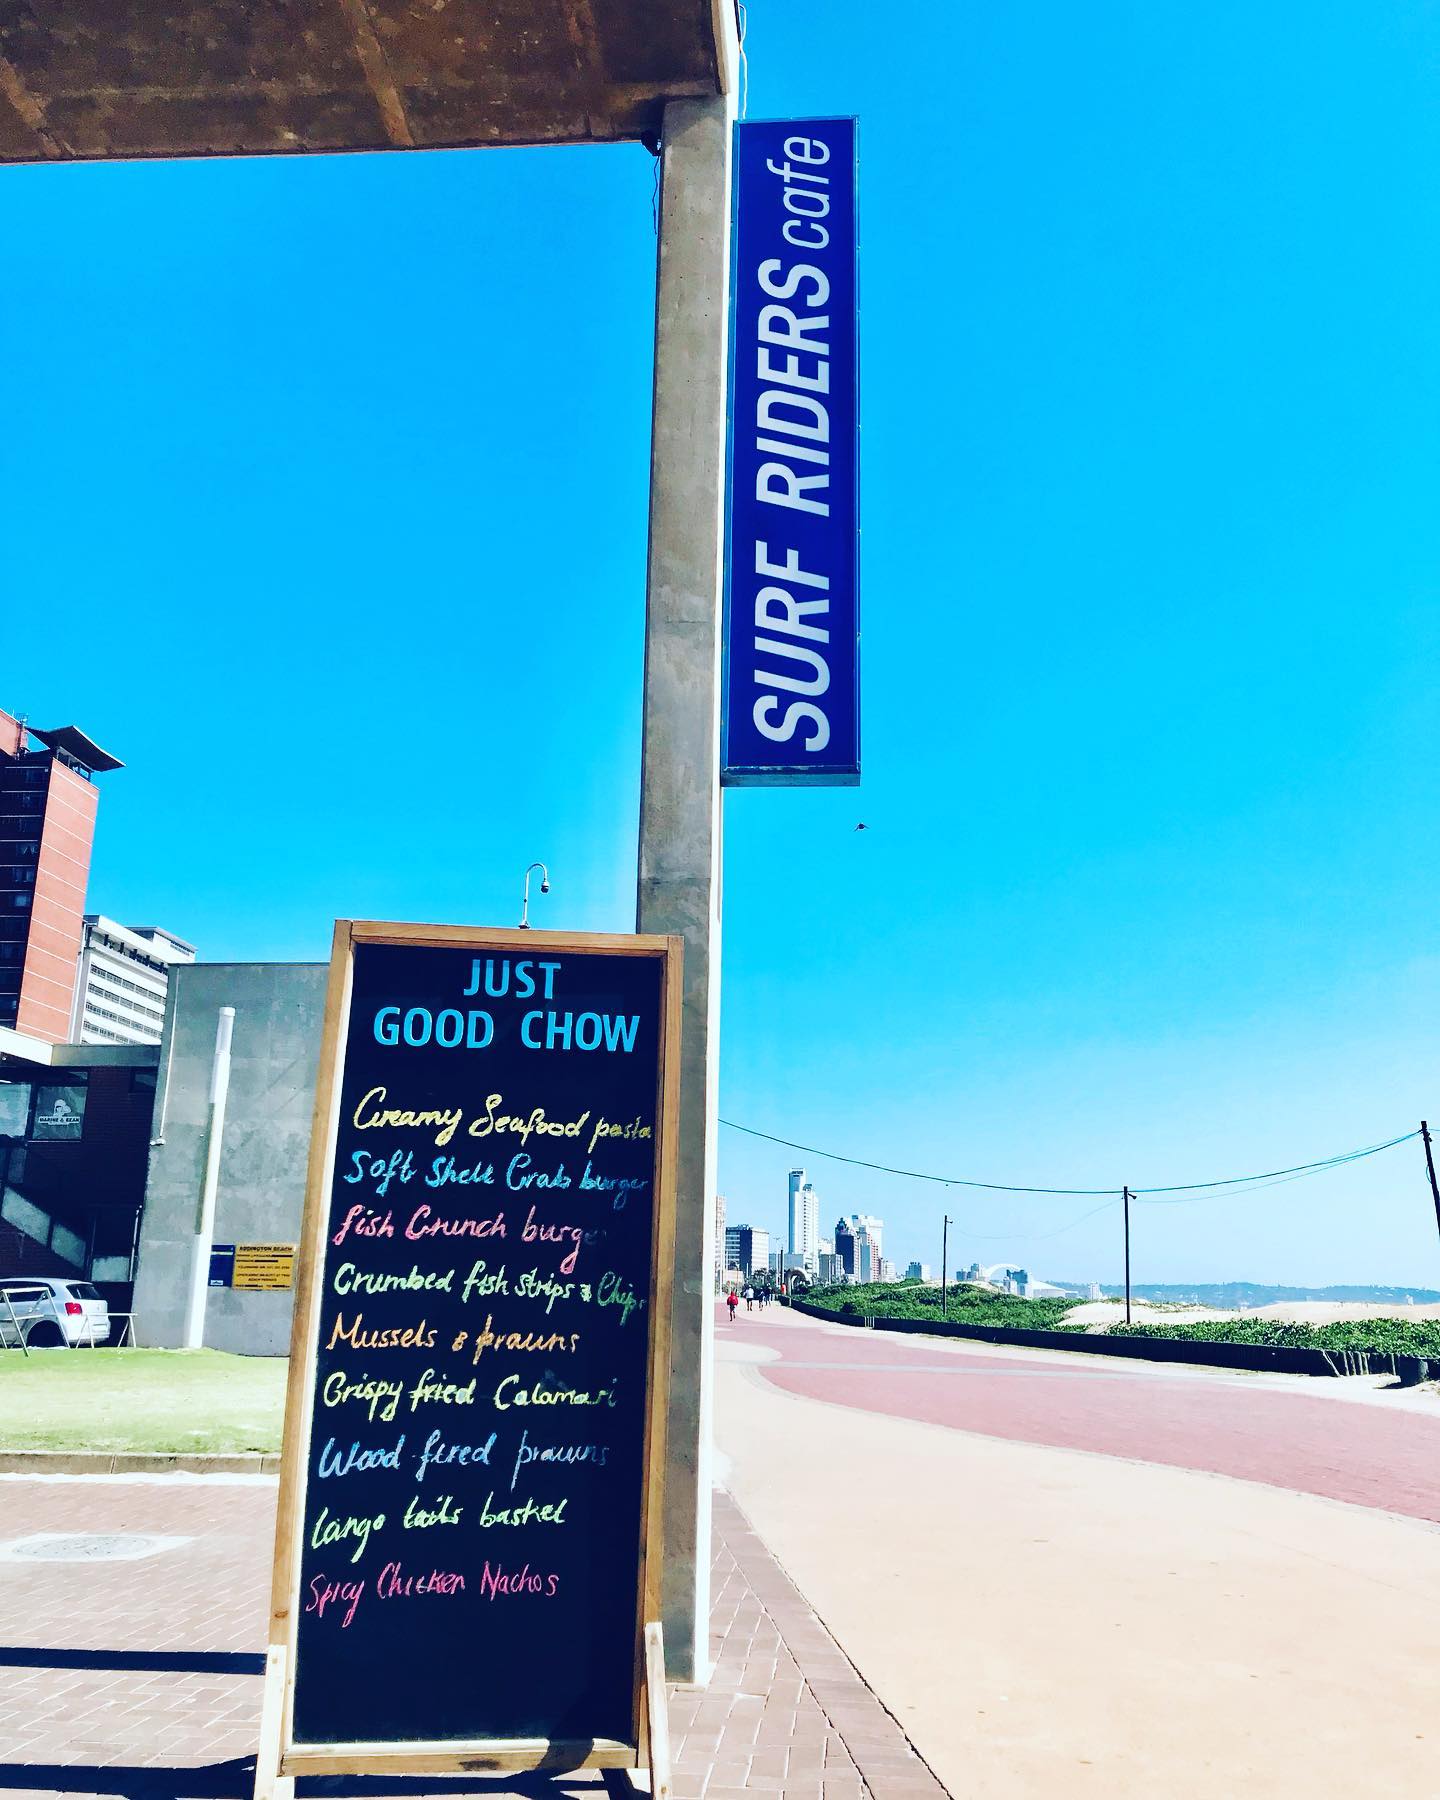 SURF RIDERS cafe
JUST
GOOD CHOW
Creamy Seafood pasta
Soft Shell Crab burger
fish Crunch burge
Crumbed fish strips & Chips
Mussels & prawns
Crispy fried Calamari
Wood fired prawns
Lango tails basket
Spicy Chicken Nachos
ADDINGTON BEACH